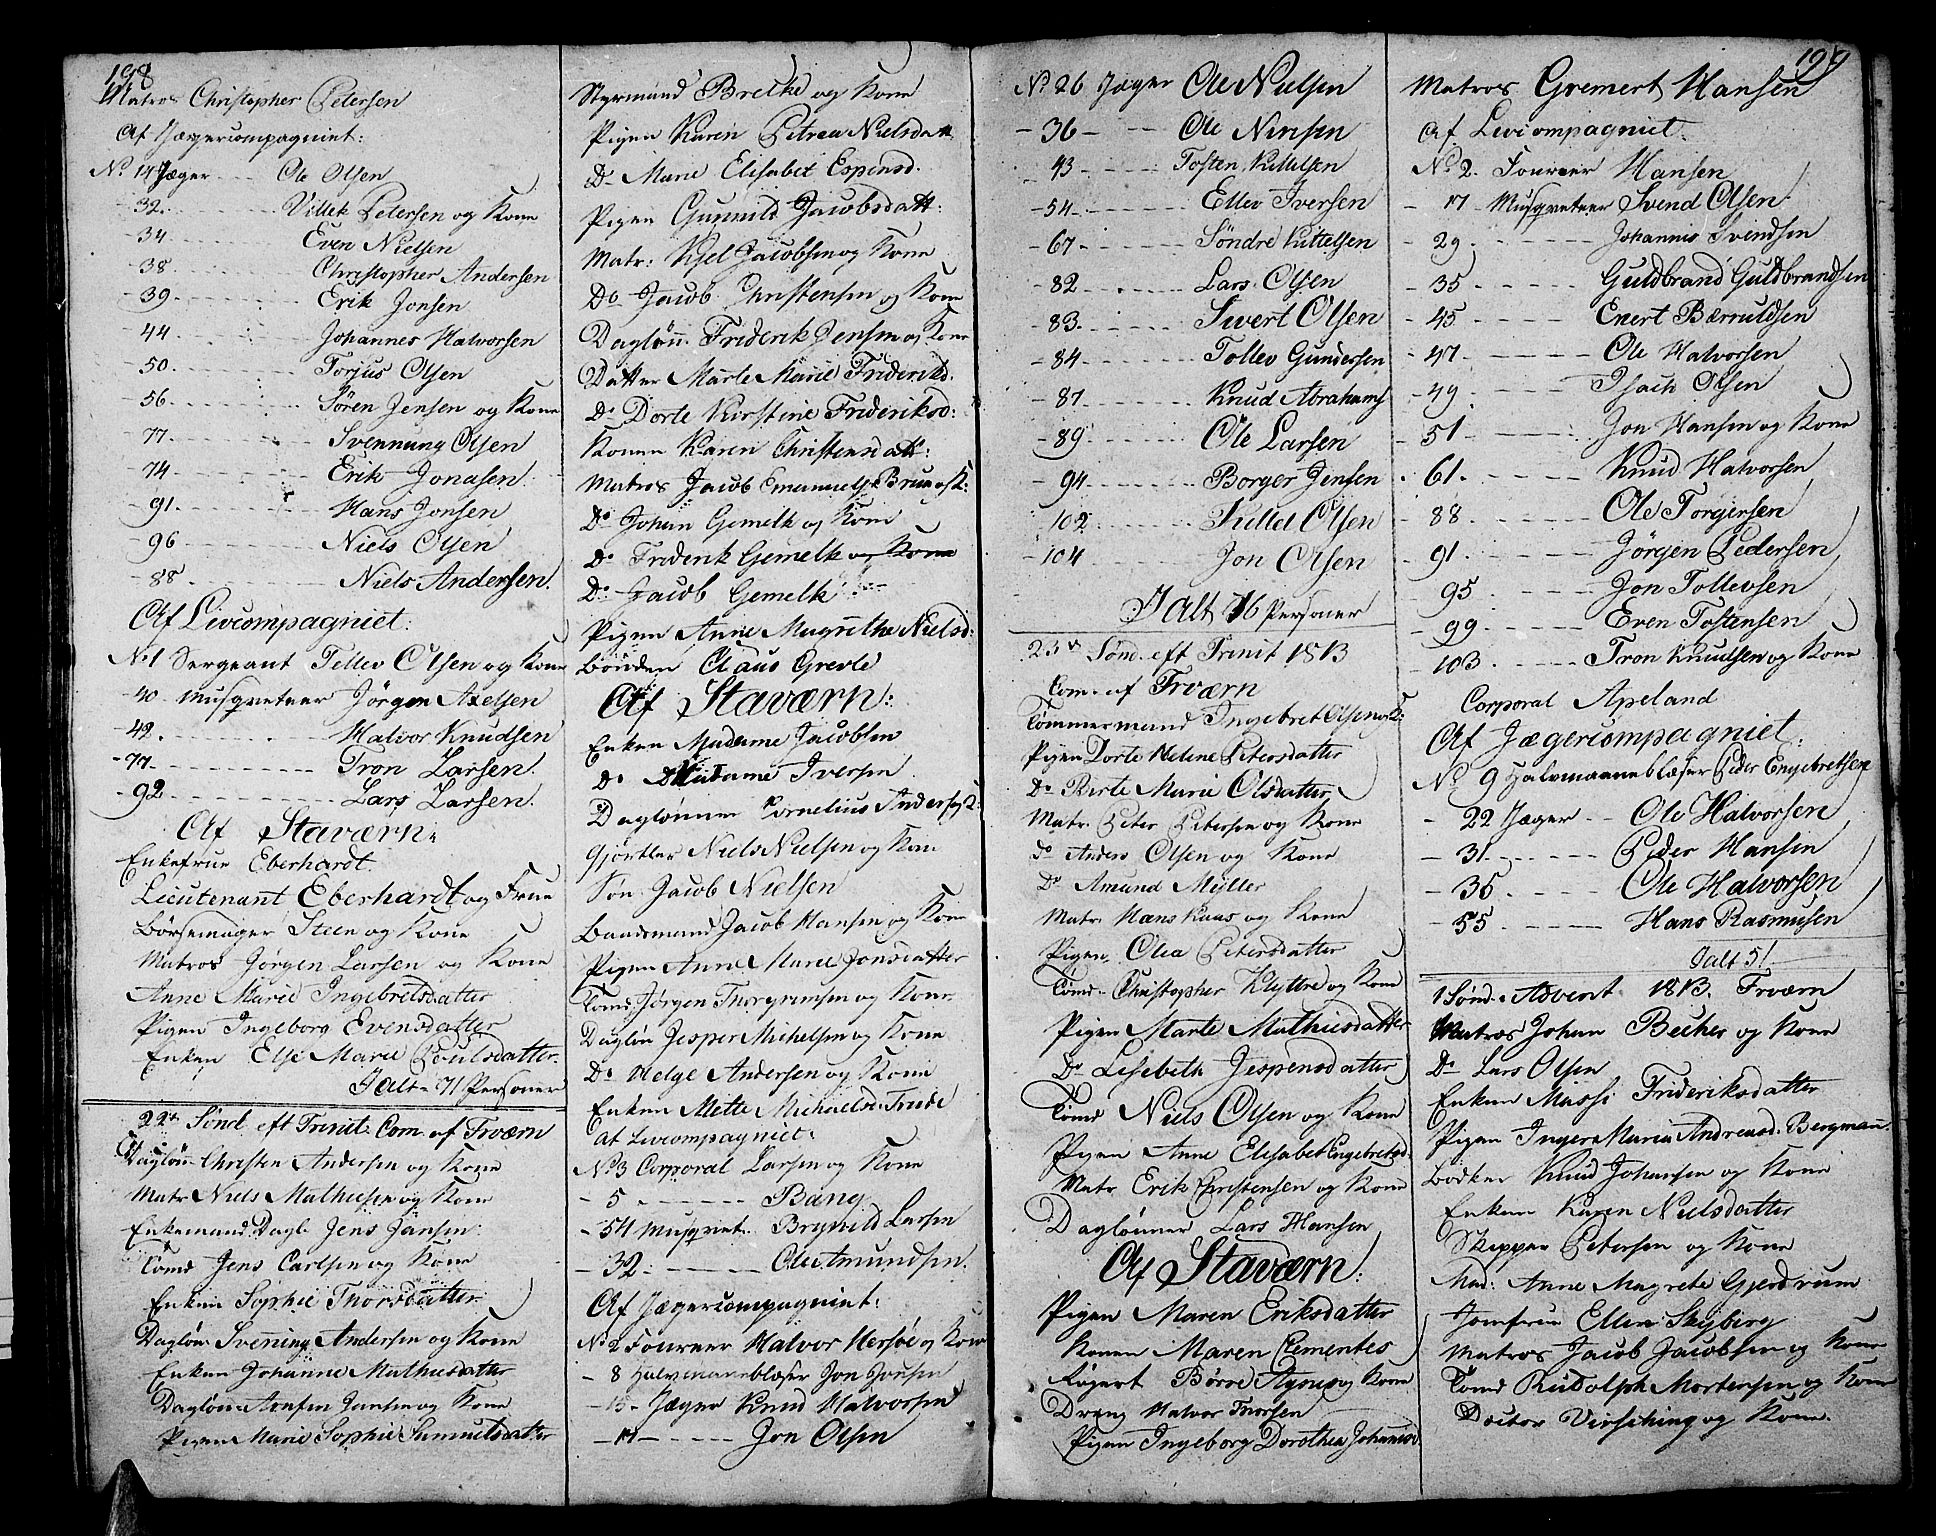 198
Matros Christopher Petersen
Af Jægercompagniet:
No 14 Jæger Ole Olsen
32. Villek Petersen og Kone
34 Even Nielsen
38 Christopher Andersen
39 Erik Jonsen
44 Johannes Halvorsen
50 Torjus Olsen
56 Sören Jensen og Kone
77 Svennung Olsen
74 Erik Jonasen
91 Hans Jonsen
96 Niels Olsen
88 Niels Andersen.
Af Livcompagniet:
No 1 Sergeant Tellev Olsen og Kone
40 Musqveteer Jörgen Axelsen
42 Halvor Knudsen
77 Tron Larsen.
92 Lars Larsen.
Af Staværn:
Enkefrue Eberhardt.
Lieutenant Eberhardt og Frue
Börsemager Steen og Kone
Matros Jörgen Larsen og Kone
Anne Marie Ingebretsdatter
Pigen Ingeborg Evensdatter
Enken Else Marie Poulsdatter
Ialt 71 Personer
22de Sönd eft Trinit. Com. af Frværn
Daglönn Christen Andersen og Kone
Matr Niels Mathiesen og Kone
Enkemand Dagl. Jens Jansen
Tömd Jens Carlsen og Kone
Enken Sophie Thorsdatter
Daglön Svening Andersen og Kone
Enken Johanne Mathiesdatter
Daglön Jansen og Kone
Pigen Marie Sophie Samuelsdatter
Styrmand Brecke og Kone
Pigen Karen Petrea Nielsdatt
Do Marie Elisabet Espensd.
Pigen Gunnild Jacobsdatt:
Matr: Kjel Jacobsen og Kone
Do Jacob Christensen og Kone
Daglönn. Friderik Jensen og Kone
Datter Marte Marie Frideriksd.
Do Dorte Kirstine Frideriksd:
Konen Karen Christensdatt:
Matros Jacob Emanuels Bruun og K:
Do Johan Gemelk og Kone
Do Friderik Gemelk og Kone
Do Jacob Gemelk
Pigen Anne Magrethe Nielsd:
Bonden Claus Grevle
Af Staværn:
Enken Madame Jacobsen
Do Madame Iversen
Daglönner Cornelius Anders og K:
Gjörtler Niels Nielsen og Kone
Sön Jacob Nielsen
Baadsmand Jacob Hansen og Kone
Pigen Anne Marie Jonsdatter
Tömd. Jörgen Thorgrimsen og Kone
Daglön Jesper Michelsen og Kone
Do Helge Andersen og Kone
Enken Mette Michaelsd. Trude
af Livcompagniet:
No 3 Corporal Larsen og Kone
5 Bang
54 Musqvet. Brynild Larsen
32 Ole Amundsen
Af Jægercompagniet:
No 2 Foureer Halvor Hersöe og Kone
8 Halvmaaneblæser Jon Jonsen
15 Jæger Knud Halvorsen
17 Jon Olsen
199
No 26 Jæger Ole Nielsen
36 Ole Nirisen
43 Tosten Kittelsen
54 Ellev Iversen
67 Söndre Kittelsen
82 Lars Olsen
83. Sivert Olsen
84 Tollev Gundersen
87 Knud Abrahams
89 Ole Larsen
94 Borger Jensen
102 Kittel Olsen
104 Jon Olsen
Ialt 76 Personer
23de Sönd. eft Trinit 1813
Com. af Frværn
Tömmermand Ingebret Olsen og K:
Pigen Dorte Helene Petersdatter
Do Birte Marie Olsdatter
Matr. Peter Petersen og Kone
do Anders Olsen og Kone
Do Amund Myller
Matr. Hans Kaas og Kone
Pigen Olea Petersdatter
Tömd. Christopher Klyttre og Kone
Pigen Marte Mathiesdatter
Do Lisebeth Jespensdatter
Tömd Niels Olsen og Kone
Pigen Anne Elisabet Engebretsd
Matr Erik Christensen og Kone
Daglönner Lars Hansen
Af Staværn:
Pigen Maren Eriksdatter
Konen Maren Clementes
Börre og Kone
Dreng Halvor Thorsen
Pigen Ingeborg Dorothea Johansd
Matros Gremert Hansen
Af Livcompagniet:
No 2. Foureer Hansen
17 Musqveteer Svend Olsen
29 Johannis Svendsen
35 Guldbrand Guldbrandsen
45 Enert Bærruldsen
47 Ole Halvorsen
49 Isach Olsen
51 Jon Hansen og Kone
61. Knud Halvorsen
88 Ole Torgersen
91 Jörgen Pedersen
95 Jon Tollevsen
99 Even Tostensen
103 Tron Knudsen og Kone
Corporal Apeland
Af Jægercompagniet:
No 9 Halvmaaneblæser Peder Engebretsen
22 Jæger Ole Halvorsen
31. Peder Hansen
35 Ole Halvorsen
55 Hans Rasmusen
Ialt 51
1 Sönd. Advent 1813. Frværn
Matros Johan Becher og Kone
Do Lars Olsen
Enken Massi Frideriksdatter
Pigen Inger Maria Andreasd. Bergman
Bödker Knud Johansen og Kone
Enken Karen Nielsdatter
Skipper Petersen og Kone
Mad: Anne Magrete Gjerdrum
Jomfrue Ellen Skyberg
Matros Jacob Jacobsen og Kone
Tömd Rudolph Mortensen og Kone
Doctor Virsching og Kone.